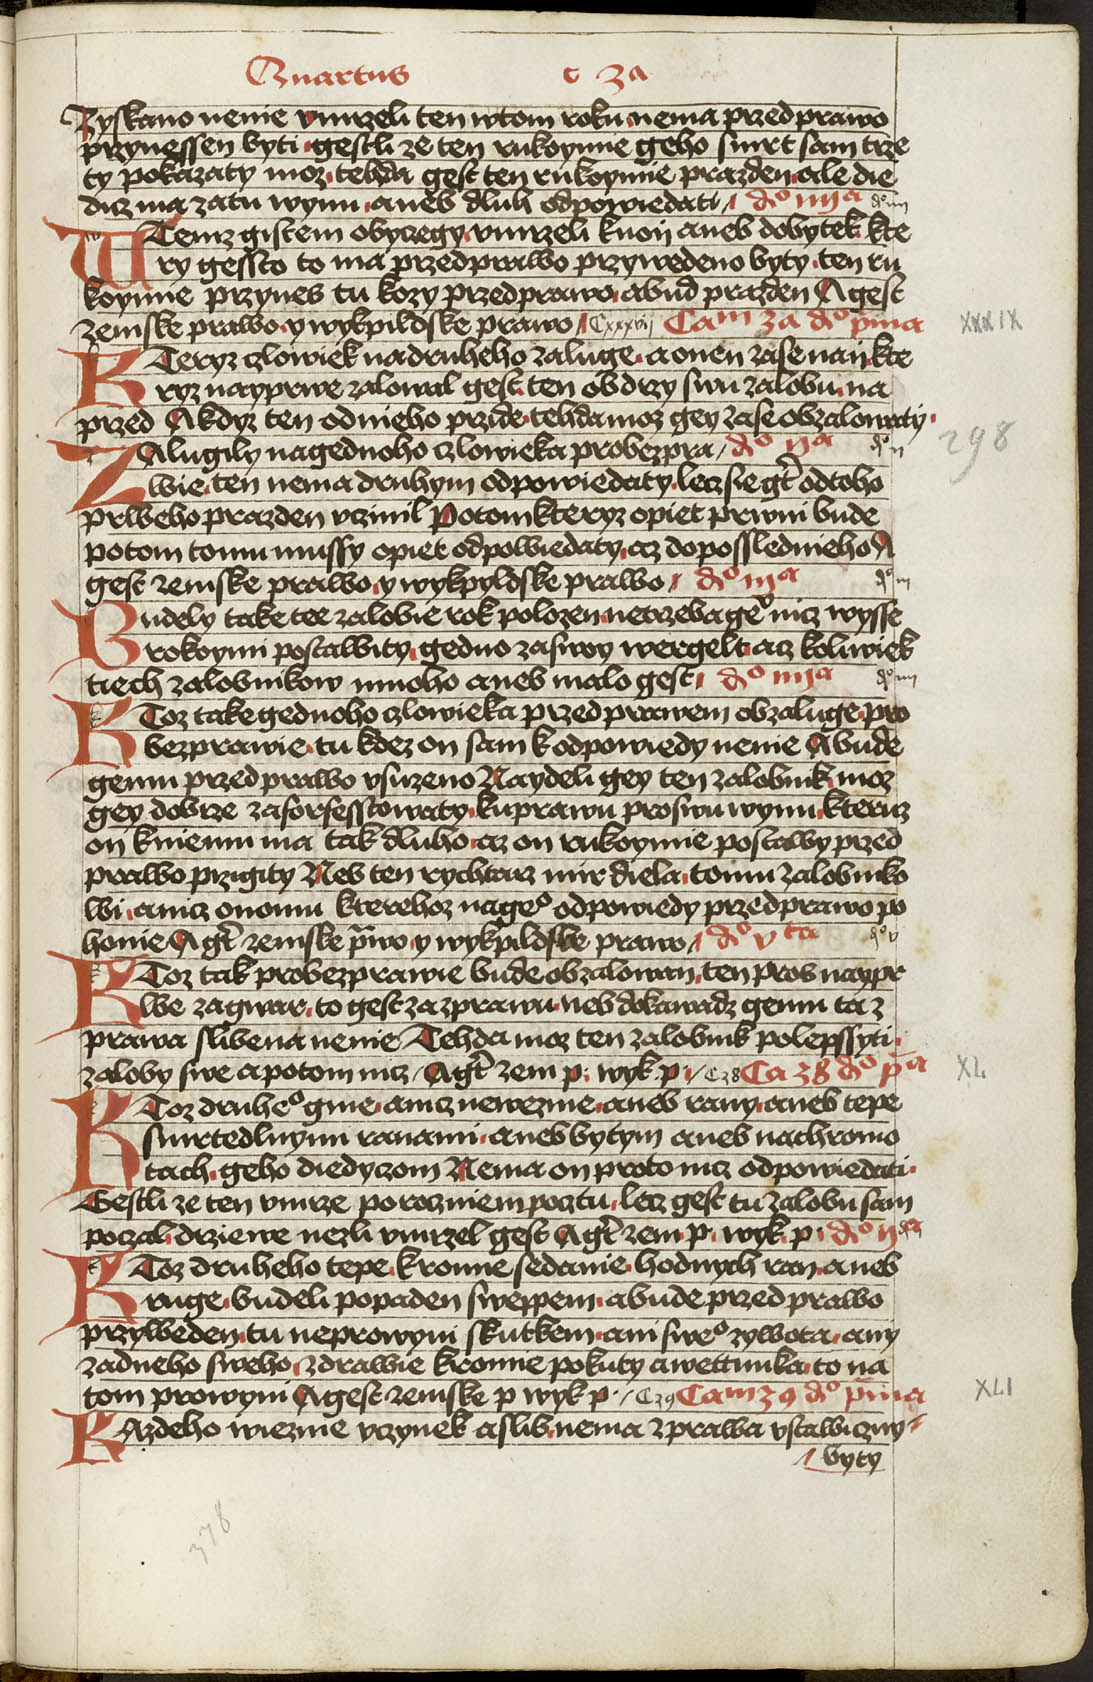 Quartus c 37a
Zyskano nenie vmrzeli ten wtom roku nema przed prawo
przynessen byti gestli ze ten rukoymie geho smrt sam trze
ty pokazaty moz tehda gest ten rukoymie prazden ale die
dicz ma zatu wynu aneb dluh odpowiedati dº iiija dº iiii
W Temz gistem obyczegy vmrzeli kuoň aneb dobytek kte
ry gessto to ma przed prawo przywedeno byty ten ru
koymie przynes tu kozy przed prawo abud prazden A gest
zemske prawo y wykpildske prawo Cxxxvij Cam 37a dº pma XXXIX
K Teryz czlowiek nadruheho zaluge aonen zase naň kte
ryz nayprwe zalowal gest ten obdrzy swu zalobu na
przed A kdyz ten odnieho przide tehda moz gey zase obzalowaty
Z Alugily nagednoho czlowieka probezpra dº ija dº ii
wie ten nema druhym odpowiedaty lecz sie gt odtoho
prweho prazden vczinil Potom kteryz opiet prwni bude
potom tomu mussy opiet odpowiedaty az doposslednieho A
gest zemske prawo y wykpyldske prawo dº iija dº iii
B udely take tee zalobie rok polozen netrzeba geº nicz wysse
rokoymi postawity gedno zaswoy wergelt acz koliwiek
tiech zalobnikow mnoho aneb malo gest dº iiija dº iiii
K Toz take gednoho czlowieka przed prawem obzaluge pro
bezprawie tu kdez on sam k odpowiedy nenie A bude
gemu przed prawo vsuzeno Naydeli gey ten zalobnik moz
gey dobrze zaforfesstowaty kuprawu proswu wynu kteruz
on kniemu ma tak dluho az on rukoymie postawy przed
prawo przigity Neb ten rychtarz mir diela tomu zalobniko
wi anicz onomu kterehoz nageº odpowiedy przed prawo po
honie A gt zemske pwo y wykpildske prawo dº vta dº v
K Toz tak probezprawie bude obzalowan ten pros naypr
we zagwar to gest zazprawu neb dokawadz gemu ta z
prawa slibena nenie Tehda moz ten zalobnik polepssyti
zaloby swe apotom nicz A gt zem p wyk p C38 Ca 38 dº pa XL
K Toz druheº gme anicz newezme aneb rany aneb tepe
smrtedlnymi ranami aneb bytym aneb nachromo
tach geho diedyczom Nema on proto nicz odpowiedati
Gestli ze ten vmrze po roczniem pocztu lecz gest tu zalobu sam
poczal drziewe nezli vmrzel gest A gt zem p wyk p dº ija
K Toz druheho tepe kromie sedanie hodnych ran aneb
ruge budeli popaden sweppem abude przed prawo
przyweden tu neprowyni skutkem ani sweº zywota any
zadneho sweho zdrawie kromie pokuty awettunka to na
tom prowyni A gest zemske p wyk p C39 Cam 39 dº pma XLI
K Azdeho wieznie vczynek aslib nema zprawa vstawiczny
byty
298
378